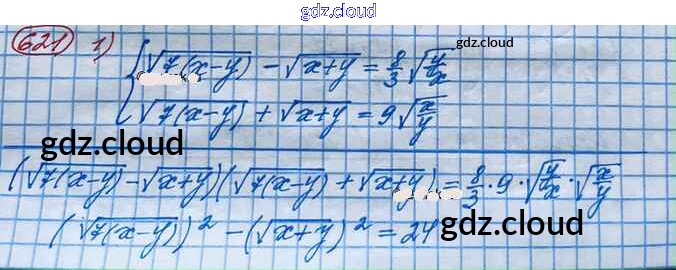 gdz.cloud
621) 1) { √7(x-y) - √x+y = 8/3 √y/x
gdz.cloud
√7(x-y) + √x+y = 9√x/y
gdz.cloud
gdz.cloud
(√7(x-y) - √x+y)(√7(x-y) + √x+y) = 8/3 · 9 · √y/x · √x/y
(√7(x-y))² - (√x+y)² = 24
gdz.cloud